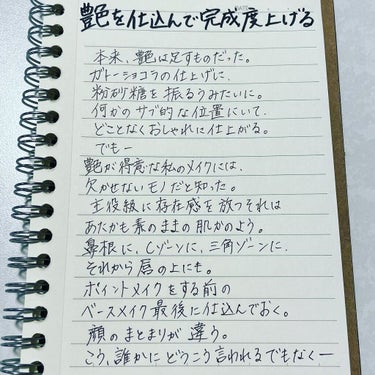 艶を仕込んで完成度上げる
本来、艶は足すものだった。
ガトーショコラの仕上げに
粉砂糖を振るうみたいに。
何かのサブ的な位置にいて、
どことなくおしゃれに仕上がる。
でもー
艶が得意な私のメイクには、
欠かせないモノだと知った。
主役級に存在感を放つそれは
あたかも素のままの肌かのよう。
鼻根に、Cゾーンに、三角ゾーンに、
それから唇の上にも。
ポイントメイクをする前の
ベースメイク最後に仕込んでおく。
顔のまとまりが違う。
こう、誰かにどうこう言われるでもなくー